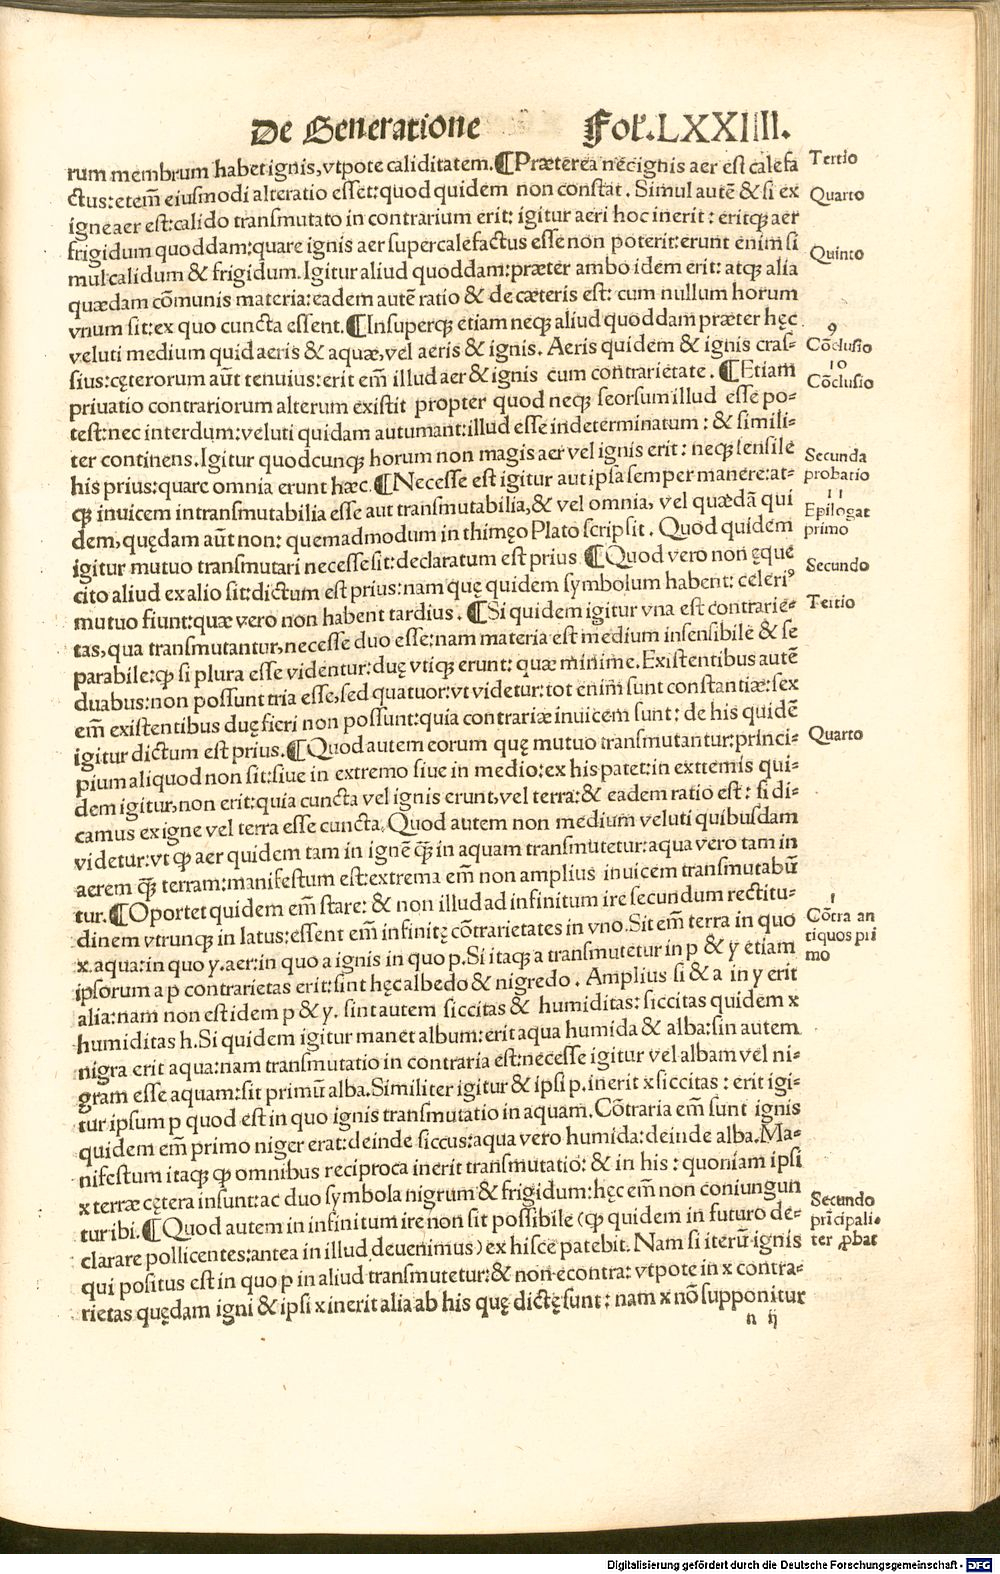 De Generatione Fol.LXXIIII.
rum membrum habet ignis,vtpote caliditatem.¶Præterea nec ignis aer est calefa
ctus:etem̄ eiusmodi alteratio esset:quod quidem non constat. Simul autē & si ex
igne aer est:calido transmutato in contrarium erit: igitur aeri hoc inerit: eritqꝫ aer
frigidum quoddam:quare ignis aer supercalefactus esse non poterit:erunt enim si
mul calidum & frigidum.Igitur aliud quoddam:præter ambo idem erit: atqꝫ alia
quædam cōmunis materia:eadem autē ratio & de cæteris est: cum nullum horum
vnum sit:ex quo cuncta essent.¶Insuperqꝫ etiam neqꝫ aliud quoddam præter hęc
veluti medium quid aeris & aquæ,vel aeris & ignis. Aeris quidem & ignis cras-
sius:cęterorum aūt tenuius:erit em̄ illud aer & ignis cum contrarietate. ¶Etiam
priuatio contrariorum alterum existit propter quod neqꝫ seorsum illud esse po-
test:nec interdum:veluti quidam autumant:illud esse indeterminatum: & simili-
ter continens.Igitur quodcunqꝫ horum non magis aer vel ignis erit: neqꝫ sensile
his prius:quare omnia erunt hæc.¶Necesse est igitur aut ipsa semper manere:at-
qꝫ inuicem intransmutabilia esse aut transmutabilia,& vel omnia, vel quædā qui
dem,quędam aūt non: quemadmodum in thimęo Plato scripsit. Quod quidem
igitur mutuo transmutari necesse sit:declaratum est prius ¶Quod vero non ęque
cito aliud ex alio sit:dictum est prius:nam quę quidem symbolum habent: celeriꝰ
mutuo fiunt:quæ vero non habent tardius. ¶Si quidem igitur vna est contrarie-
tas,qua transmutantur,necesse duo esse:nam materia est medium insensibile & se
parabile:ꝙ si plura esse videntur:duę vtiqꝫ erunt: quæ minime.Existentibus autē
duabus:non possunt tria esse,sed quatuor:vt videtur:tot enim sunt constantiæ:sex
em̄ existentibus duę fieri non possunt:quia contrariæ inuicem sunt: de his quidē
igitur dictum est prius.¶Quod autem eorum quę mutuo transmutantur:princi-
pium aliquod non sit:siue in extremo siue in medio:ex his patet:in extremis qui-
dem igitur,non erit:quia cuncta vel ignis erunt,vel terra:& eadem ratio est: si di-
camus ex igne vel terra esse cuncta.Quod autem non medium veluti quibusdam
videtur:vt ꝙ aer quidem tam in ignē ꝙ̄ in aquam transmutetur:aqua vero tam in
aerem ꝙ̄ terram:manifestum est:extrema em̄ non amplius inuicem transmutabū
tur.¶Oportet quidem em̄ stare: & non illud ad infinitum ire secundum rectitu-
dinem vtrunqꝫ in latus:essent em̄ infinitę cōtrarietates in vno.Sit em̄ terra in quo
x.aqua:in quo y.aer:in quo a ignis in quo p.Si itaqꝫ a transmutetur in p & y etiam
ipsorum a p contrarietas erit:sint hęc albedo & nigredo. Amplius si & a in y erit
alia:nam non est idem p & y. sint autem siccitas & humiditas: siccitas quidem x
humiditas h.Si quidem igitur manet album:erit aqua humida & alba:sin autem
nigra erit aqua:nam transmutatio in contraria est:necesse igitur vel albam vel ni-
gram esse aquam:sit primū alba.Similiter igitur & ipsi p.inerit x siccitas: erit igi-
tur ipsum p quod est in quo ignis transmutatio in aquam.Cōtraria em̄ sunt ignis
quidem em̄ primo niger erat:deinde siccus:aqua vero humida:deinde alba.Ma-
nifestum itaqꝫ ꝙ omnibus reciproca inerit transmutatio: & in his: quoniam ipsi
x terræ cętera insunt:ac duo symbola nigrum & frigidum:hęc em̄ non coniungun
tur ibi.¶Quod autem in infinitum ire non sit possibile (ꝙ quidem in futuro de-
clarare pollicentes:antea in illud deuenimus) ex hisce patebit. Nam si iterū ignis
qui positus est in quo p in aliud transmutetur:& non econtra: vtpote in x contra-
rietas quędam igni & ipsi x inerit alia ab his quę dictę sunt: nam x nō supponitur
n ij
Tertio
Quarto
Quinto
9
Cōclusio
10
Cōclusio
Secunda
probatio
11
Epilogat
primo
Secundo
Tertio
Quarto
1
Cōtra an
tiquos pri
mo
Secundo
prīcipali-
ter ꝓbat
Digitalisierung gefördert durch die Deutsche Forschungsgemeinschaft - DFG